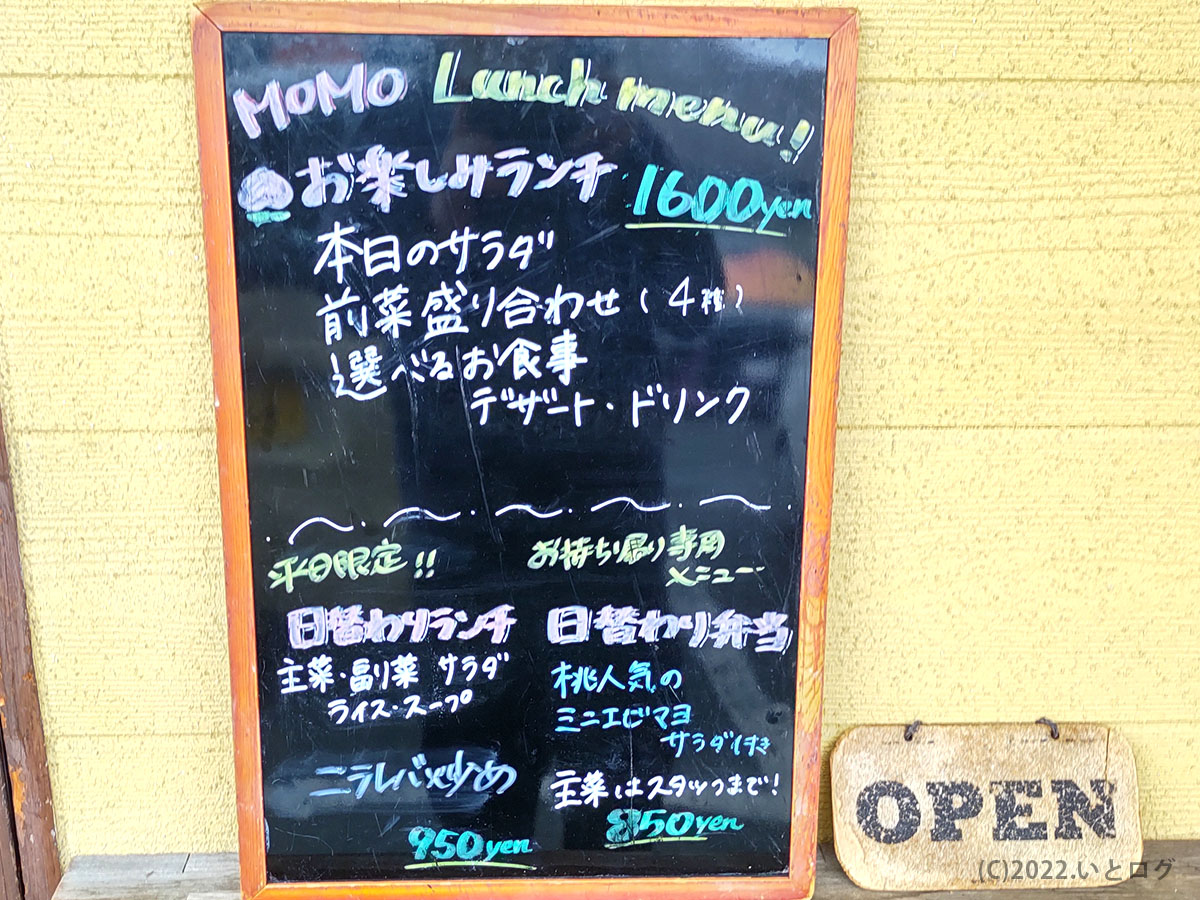 MoMo Lunch menu!
お楽しみランチ 1600yen
本日のサラダ
前菜盛り合わせ(4種)
選べるお食事
デザート・ドリンク
平日限定!!
日替わりランチ
主菜・副菜 サラダ
ライス・スープ
ニラレバ炒め
950yen
お持ち帰り専用
メニュー
日替わり弁当
桃人気の
ミニエビマヨ
サラダ付き
主菜はスタッフまで!
850yen
OPEN
(C)2022.いとログ